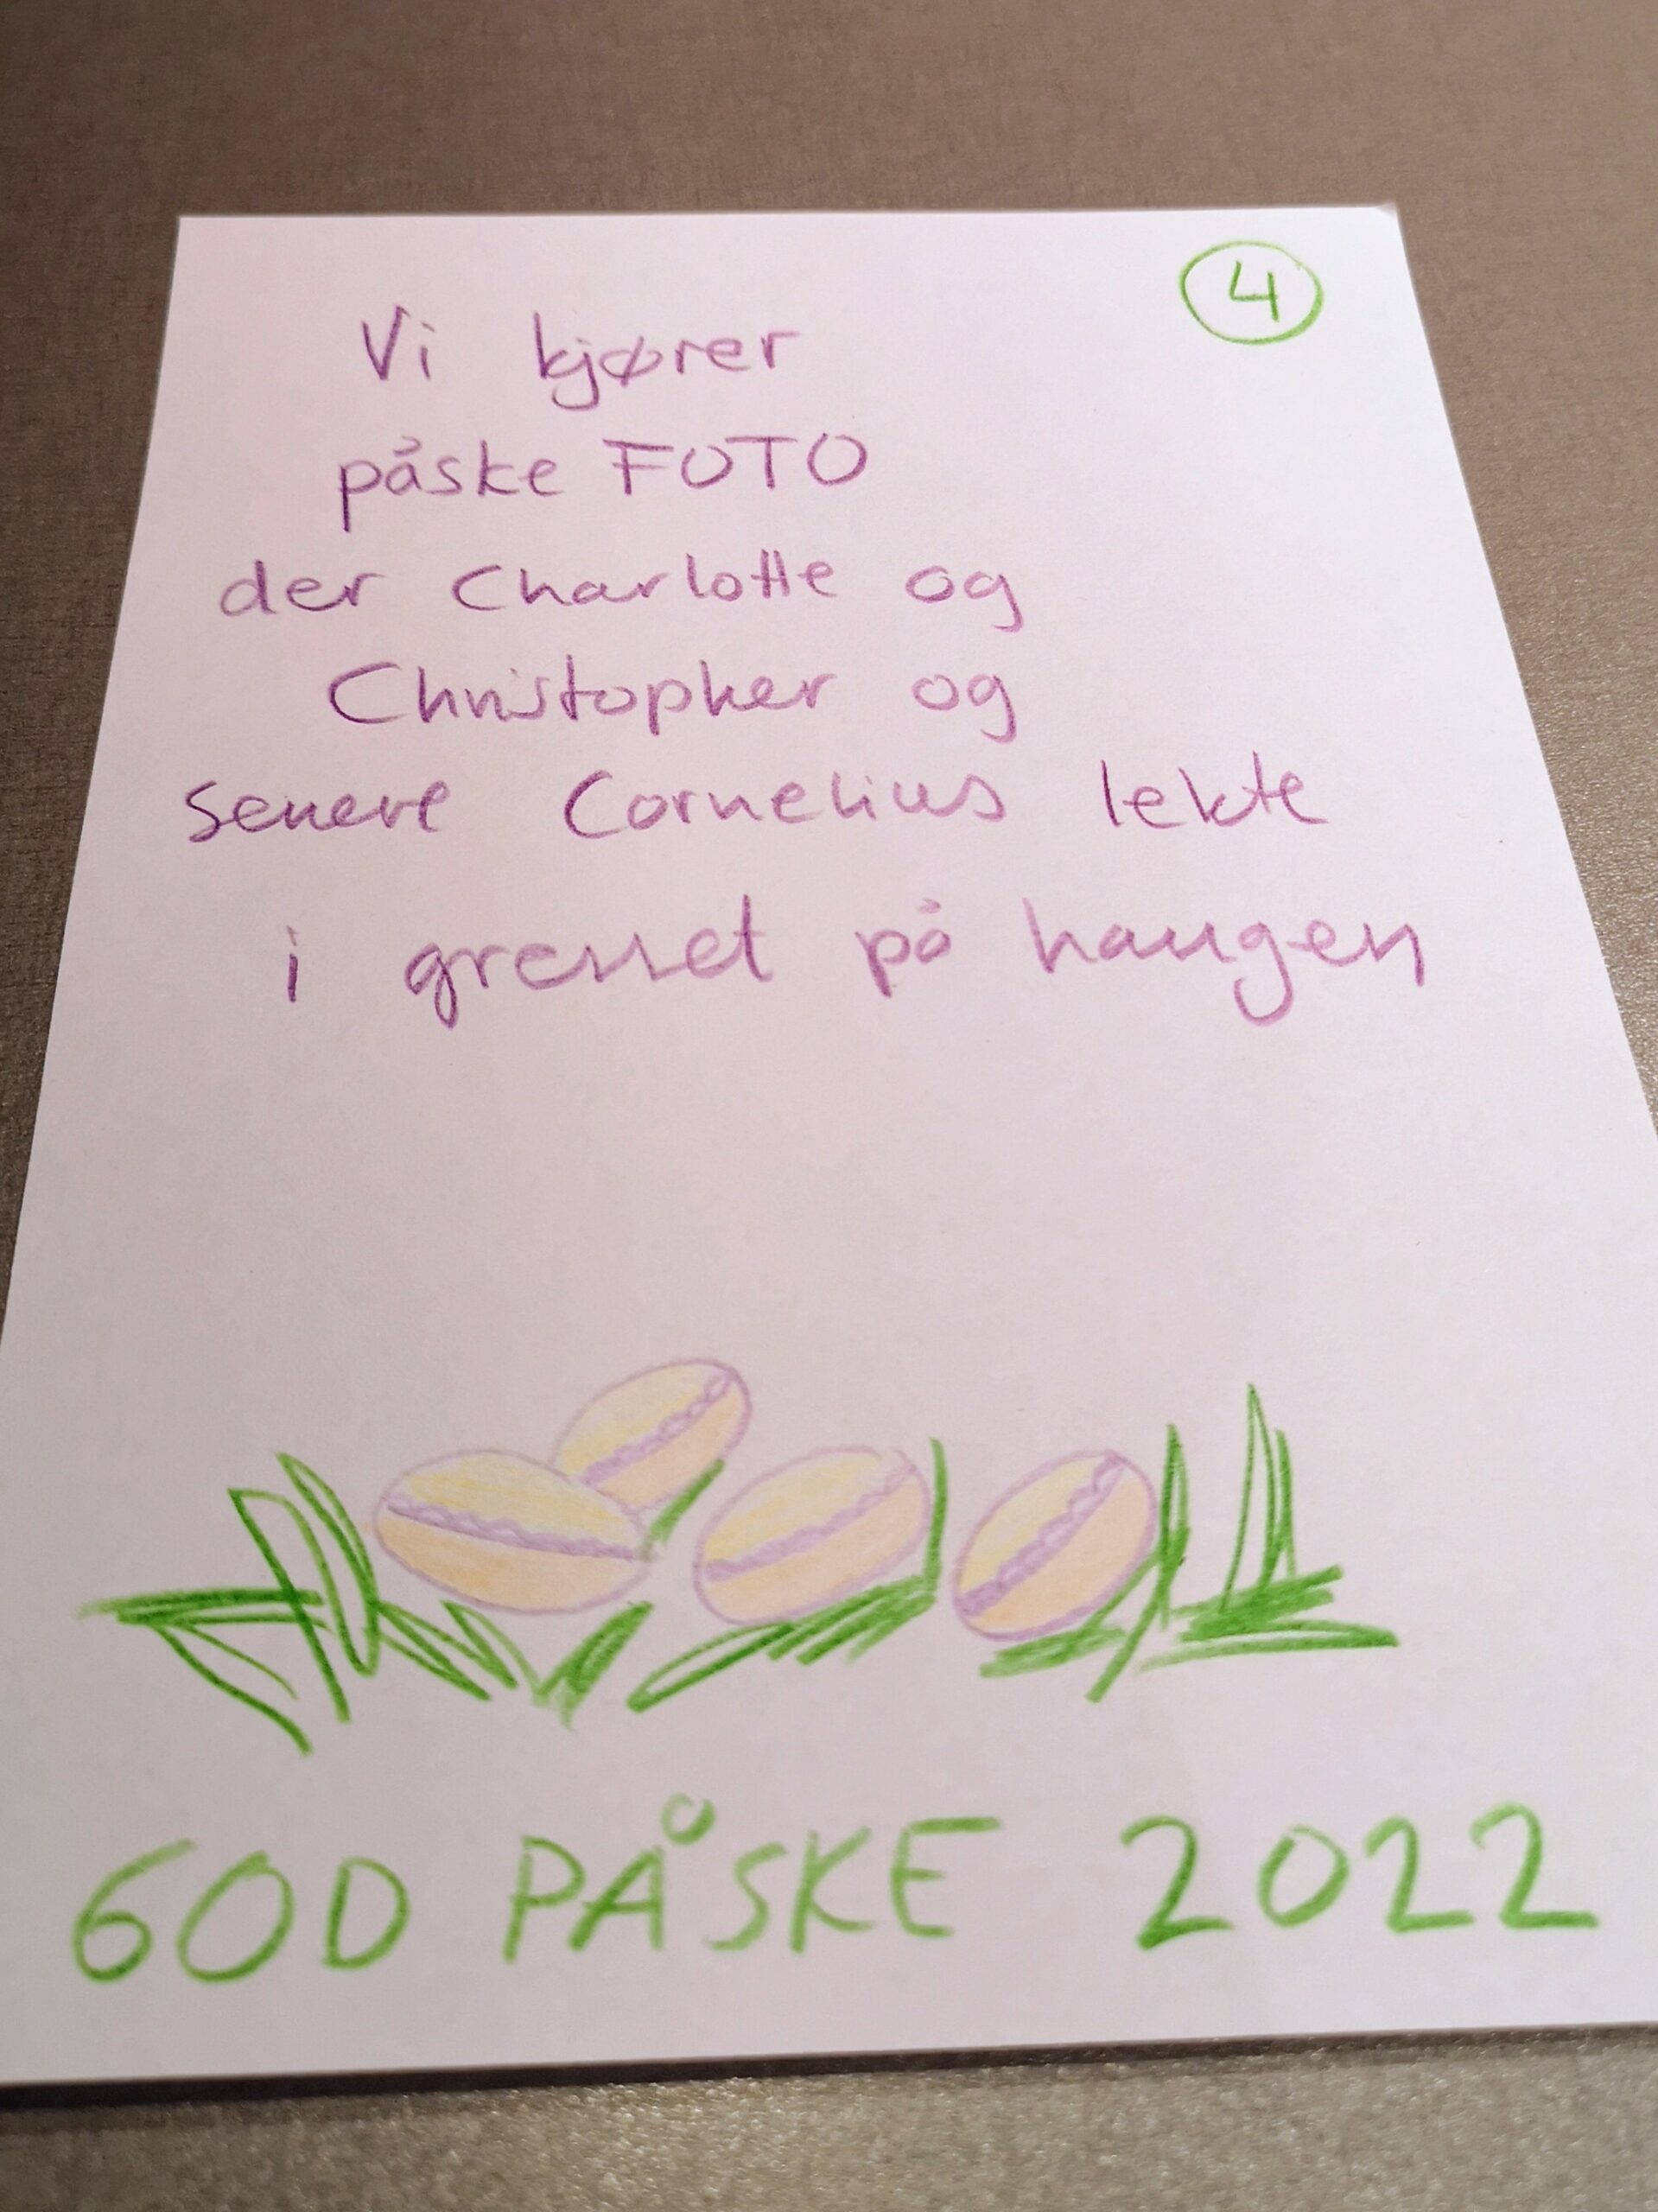 4
Vi kjører
påske FOTO
der Charlotte og
Christopher og
senere Cornelius lekte
i gresset på haugen
GOD PÅSKE 2022